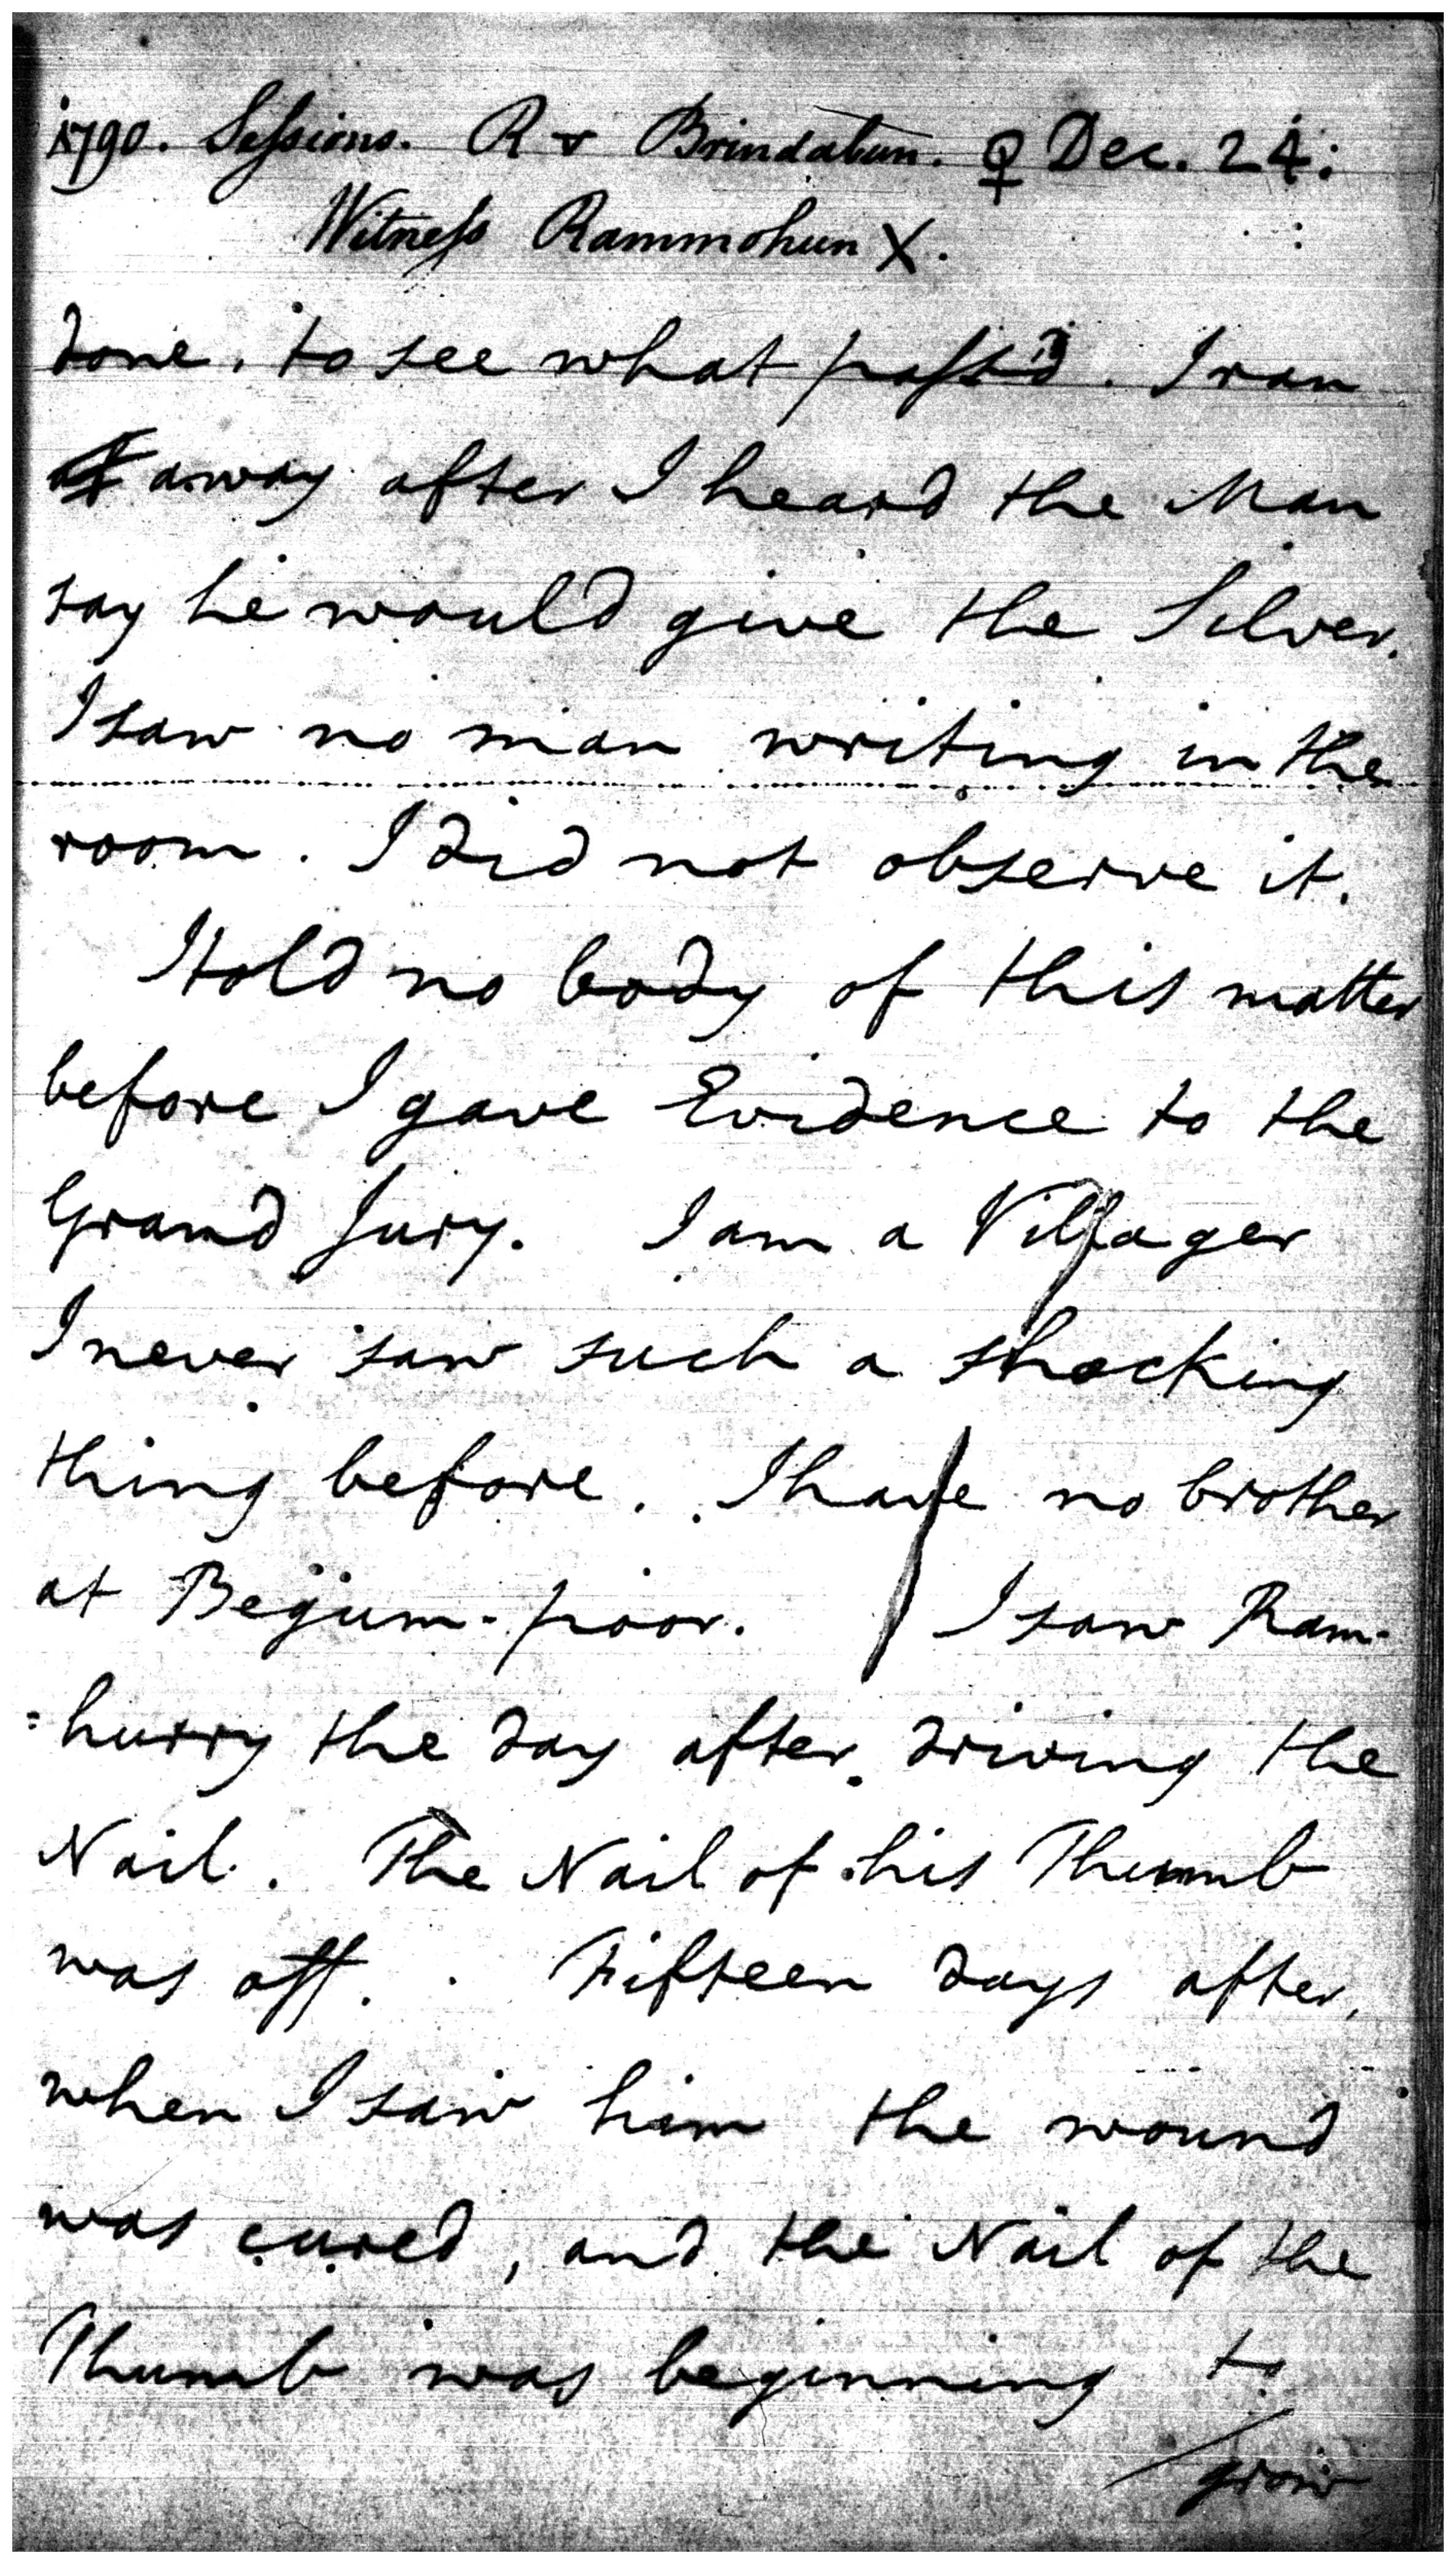 1790. Sessions. R v Brindabun. ♀ Dec. 24:
Witness Rammohun X.
done, to see what pass'd. I ran
away after I heard the Man
say he would give the Silver.
I saw no man writing in the
room. I did not observe it.
I told no body of this matter
before I gave Evidence to the
Grand Jury. I am a Villager
I never saw such a shocking
thing before. I have no brother
at Begum-poor. I saw Ram-
=hurry the day after driving the
Nail. The Nail of his Thumb
was off. Fifteen days after,
when I saw him the wound
was cured, and the Nail of the
Thumb was beginning to
/grow